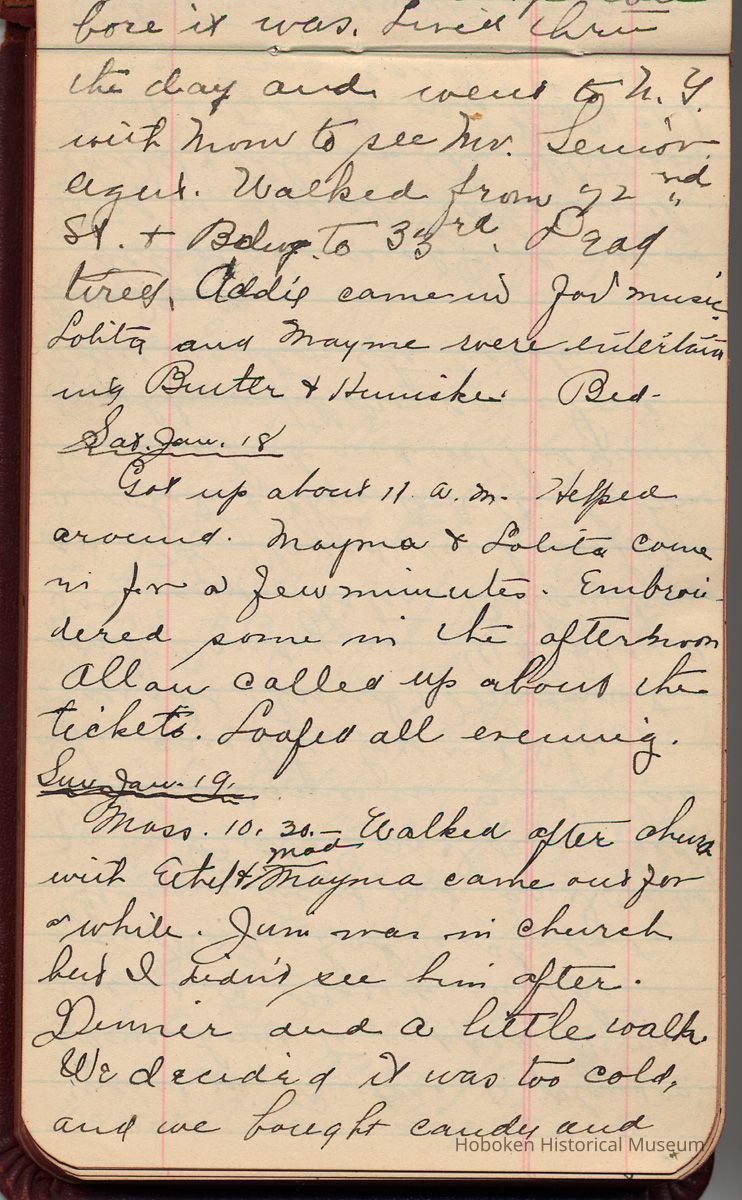 bore it was. Lived thru
the day and went to N. Y.
with Mom to see Mr. Senior
again. Walked from 72nd
St. + Bdwy. to 33rd. Dead
tired. Addie came in for music
Lolita and Mayme were entertain
ing & Bed.
Sat. Jan. 18
Got up about 11 a.m. Helped
around. Mayma & Lolita came
in for a few minutes. Embroi-
dered some in the afternoon
Allan called up about the
tickets. Loafed all evening.
Sun. Jan. 19.
Mass. 10.30.— Walked after church
mad
with Ethel & Mayma came out for
a while. Jim was in church
but I didn't see him after.
Dinner and a little walk.
We decided it was too cold,
and we bought candy and
Hoboken Historical Museum